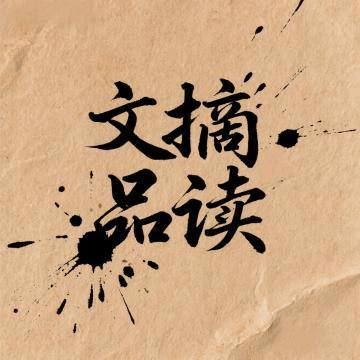 文摘
品读